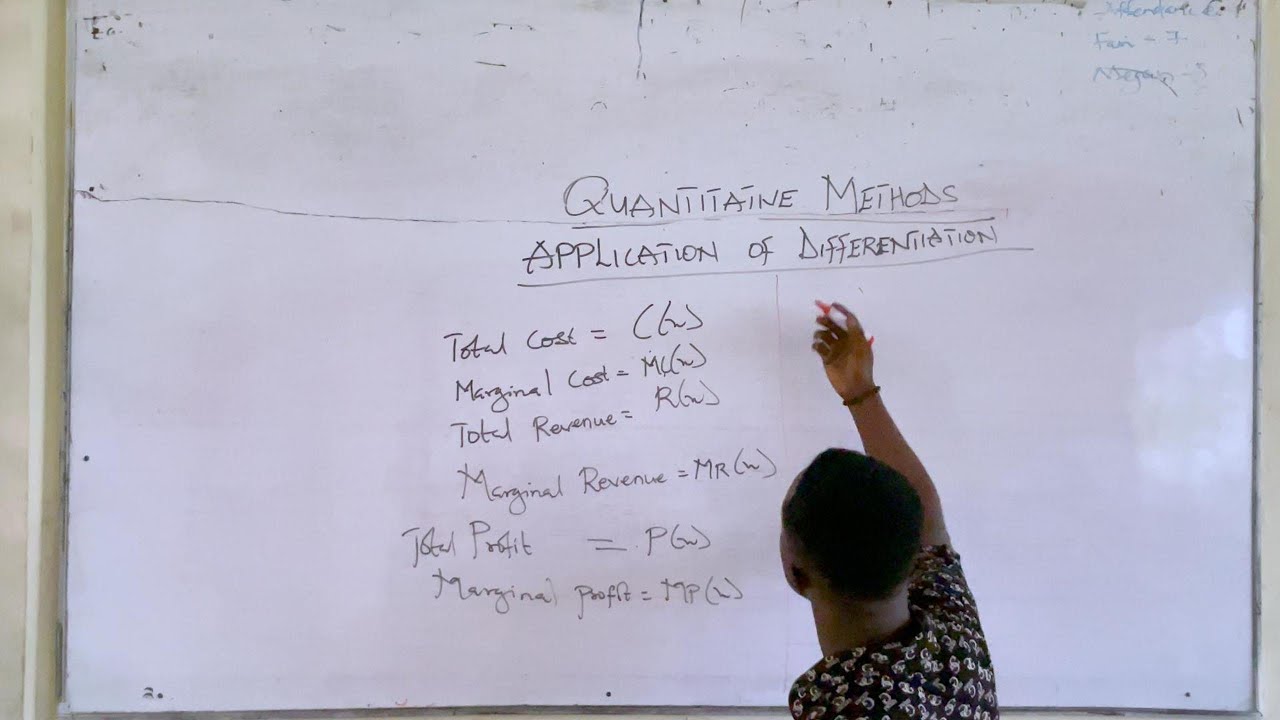 Fair - 7
QUANTITATIVE METHODS
APPLICATION OF DIFFERENTIATION
Total Cost = C(x)
Marginal Cost = MC(x)
Total Revenue = R(x)
Marginal Revenue = MR(x)
Total Profit = P(x)
Marginal profit = MP(x)